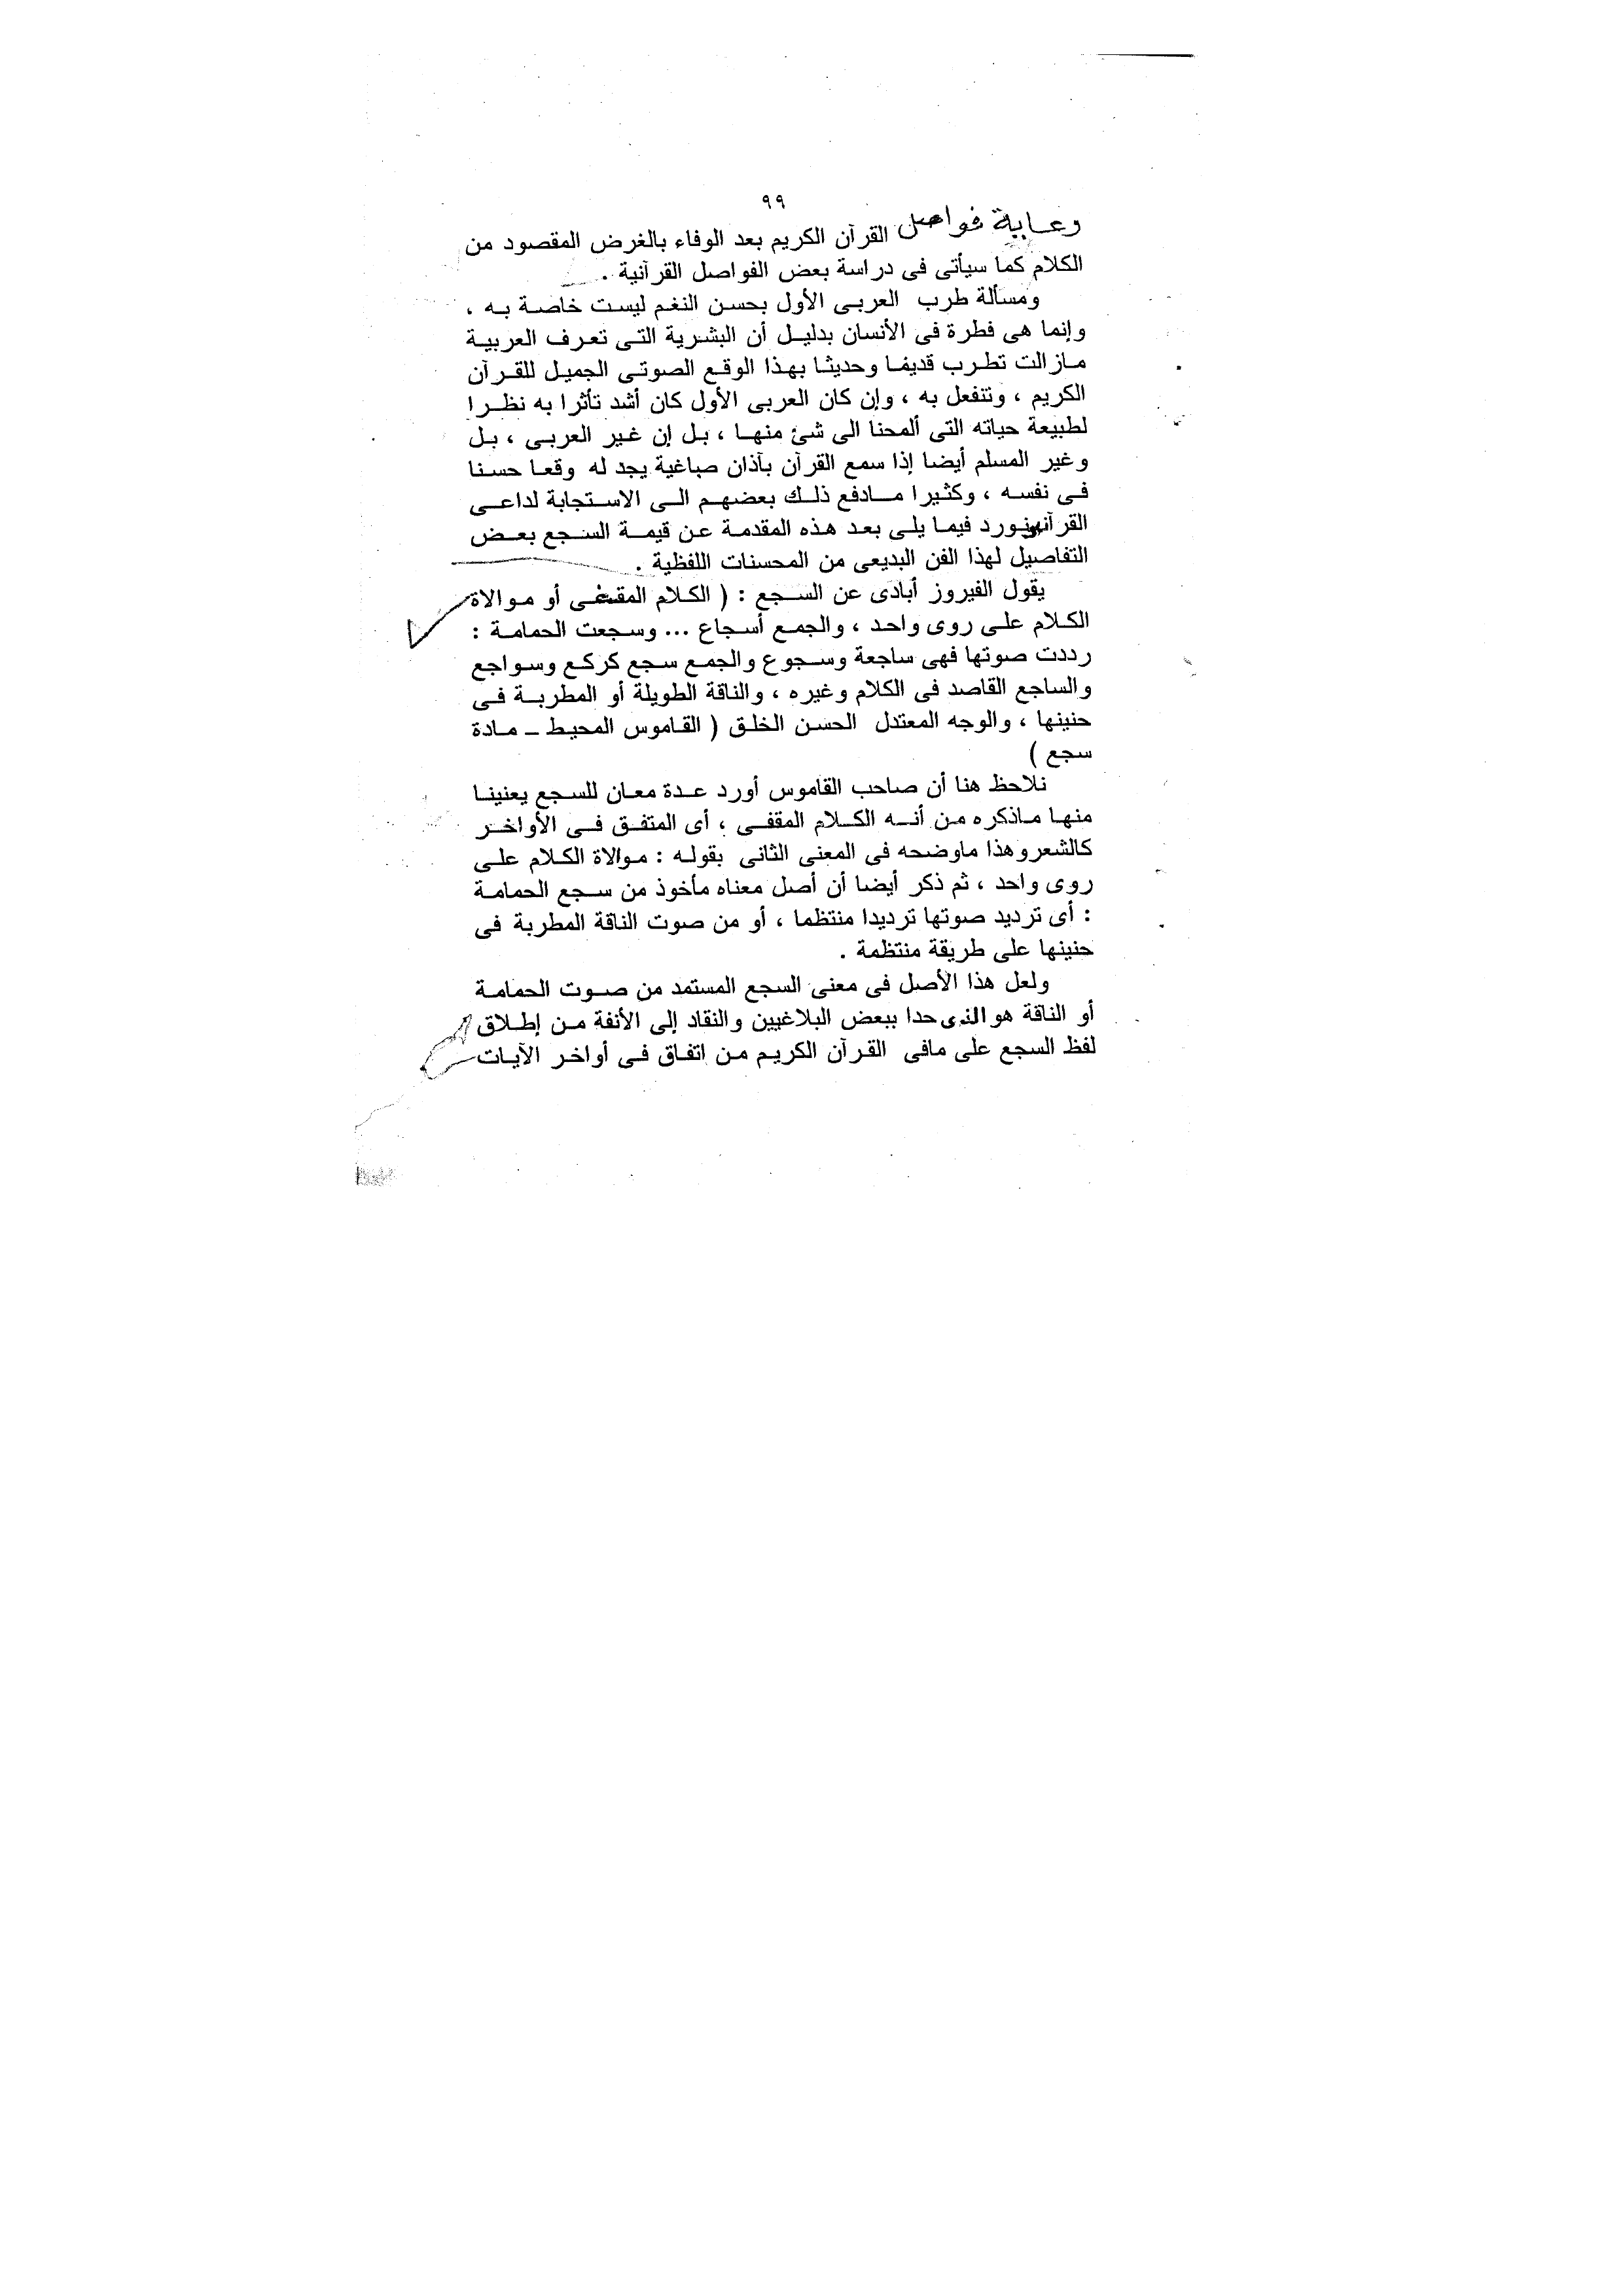 ٩٩
رعاية فواصل القرآن الكريم بعد الوفاء بالغرض المقصود من
الكلام كما سيأتى فى دراسة بعض الفواصل القرآنية .
ومسألة طرب العربى الأول بحسن النغم ليست خاصة به ،
وإنما هى فطرة فى الأنسان بدليل أن البشرية التى تعرف العربية
مازالت تطرب قديما وحديثا بهذا الوقع الصوتى الجميل للقرآن
الكريم ، وتنفعل به ، وإن كان العربى الأول كان أشد تأثرا به نظرا
لطبيعة حياته التى ألمحنا الى شئ منها ، بل إن غير العربى ، بل
وغير المسلم أيضا إذا سمع القرآن بآذان صباغية يجد له وقعا حسنا
فى نفسه ، وكثيرا مادفع ذلك بعضهم الى الاستجابة لداعى
القرآن ونورد فيما يلى بعد هذه المقدمة عن قيمة السجع بعض
التفاصيل لهذا الفن البديعى من المحسنات اللفظية .
يقول الفيروز أبادى عن السجع : ( الكلام المقفى أو موالاة
الكلام على روى واحد ، والجمع أسجاع ... وسجعت الحمامة :
رددت صوتها فهى ساجعة وسجوع والجمع سجع كركع وسواجع
والساجع القاصد فى الكلام وغيره ، والناقة الطويلة أو المطربة فى
حنينها ، والوجه المعتدل الحسن الخلق ( القاموس المحيط – مادة
سجع )
نلاحظ هنا أن صاحب القاموس أورد عدة معان للسجع يعنينا
منها ماذكره من أنه الكلام المقفى ، أى المتفق فى الأواخر
كالشعروهذا ماوضحه فى المعنى الثانى بقوله : موالاة الكلام على
روى واحد ، ثم ذكر أيضا أن أصل معناه مأخوذ من سجع الحمامة
: أى ترديد صوتها ترديدا منتظما ، أو من صوت الناقة المطربة فى
حنينها على طريقة منتظمة .
ولعل هذا الأصل فى معنى السجع المستمد من صوت الحمامة
أو الناقة هو الذى حدا ببعض البلاغيين والنقاد إلى الأنفة من إطلاق
لفظ السجع على مافى القرآن الكريم من اتفاق فى أواخر الآيات